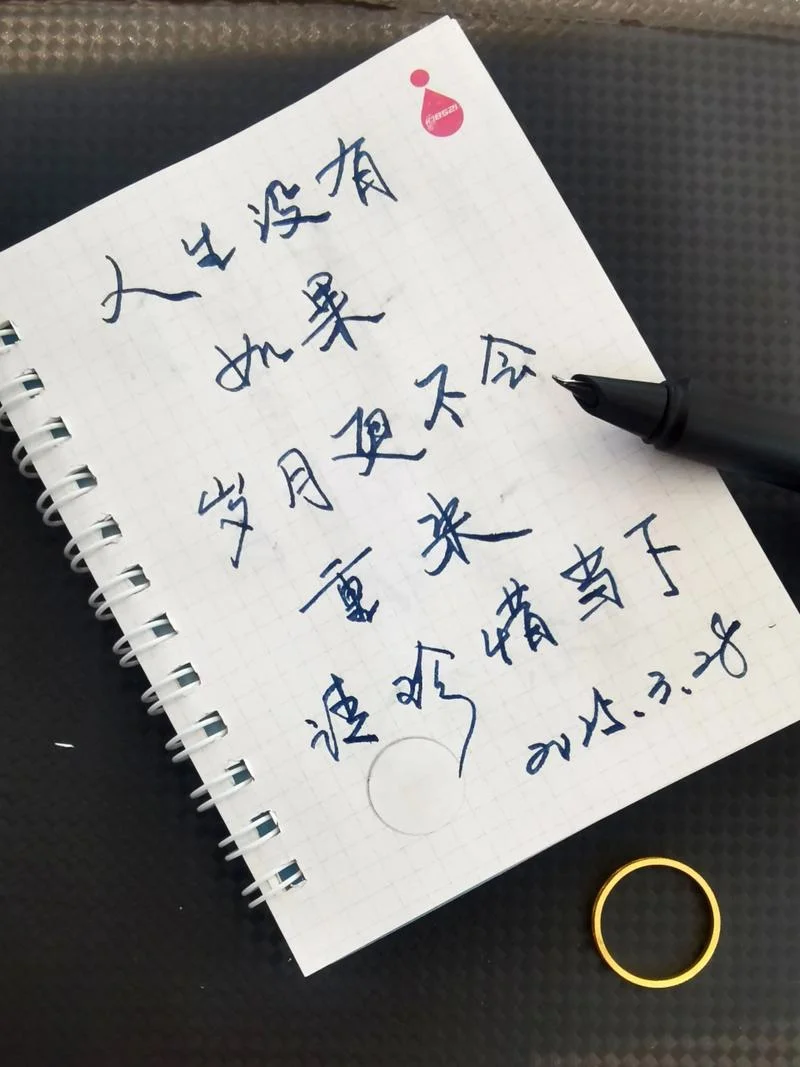 人生没有
如果
岁月更不会
重来
请珍惜当下
2025.3.28